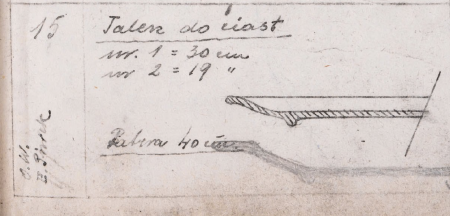 15
Talerz do ciast
nr. 1 = 30 cm
nr 2 = 19 "
Patera 40 cm